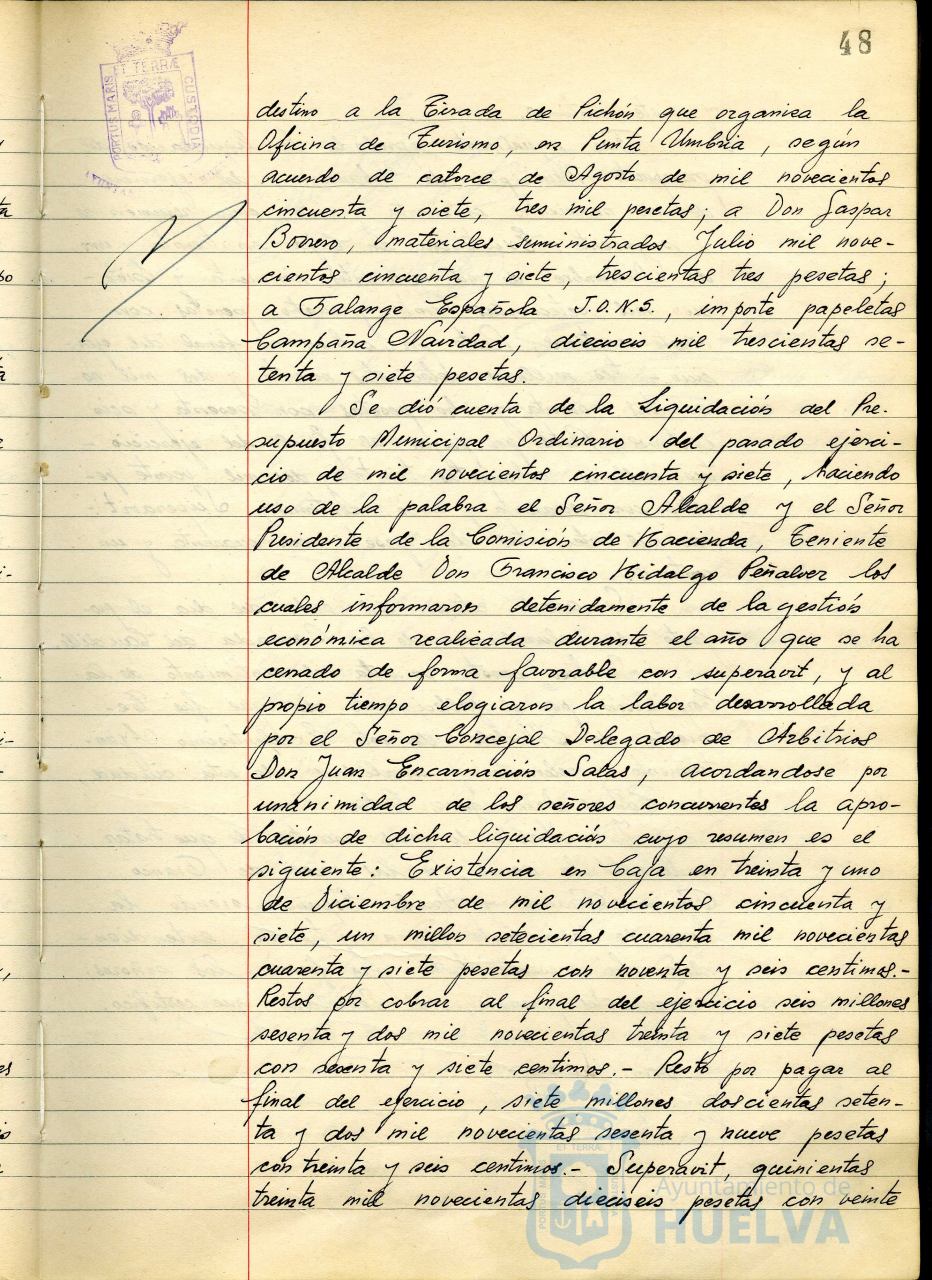 48
PORTUS MARIS ET TERRÆ CUSTODIA
destino a la Tirada de Pichón que organiza la
Oficina de Turismo, en Punta Umbría, según
acuerdo de catorce de Agosto de mil novecientos
cincuenta y siete, tres mil pesetas; a Don Gaspar
Borrero, materiales suministrados Julio mil nove-
cientos cincuenta y siete, trescientas tres pesetas;
a Falange Española J.O.N.S., importe papeletas
Campaña Navidad, dieciseis mil trescientas se-
tenta y siete pesetas.
Se dió cuenta de la Liquidación del Pre-
supuesto Municipal Ordinario del pasado ejerci-
cio de mil novecientos cincuenta y siete, haciendo
uso de la palabra el Señor Alcalde y el Señor
Presidente de la Comisión de Hacienda, Teniente
de Alcalde Don Francisco Hidalgo Peñalver los
cuales informaron detenidamente de la gestión
económica realizada durante el año que se ha
cerrado de forma favorable con superavit, y al
propio tiempo elogiaron la labor desarrollada
por el Señor Concejal Delegado de Arbitrios
Don Juan Encarnación Salas, acordandose por
unanimidad de los señores concurrentes la apro-
bación de dicha liquidación cuyo resumen es el
siguiente: Existencia en Caja en treinta y uno
de Diciembre de mil novecientos cincuenta y
siete, un millon setecientas cuarenta mil novecientas
cuarenta y siete pesetas con noventa y seis centimos.-
Restos por cobrar al final del ejercicio seis millones
sesenta y dos mil novecientas treinta y siete pesetas
con sesenta y siete centimos.- Resto por pagar al
final del ejercicio, siete millones doscientas seten-
ta y dos mil novecientas sesenta y nueve pesetas
con treinta y seis centimos.- Superavit, quinientas
treinta mil novecientas dieciseis pesetas con veinte
Ayuntamiento de
HUELVA